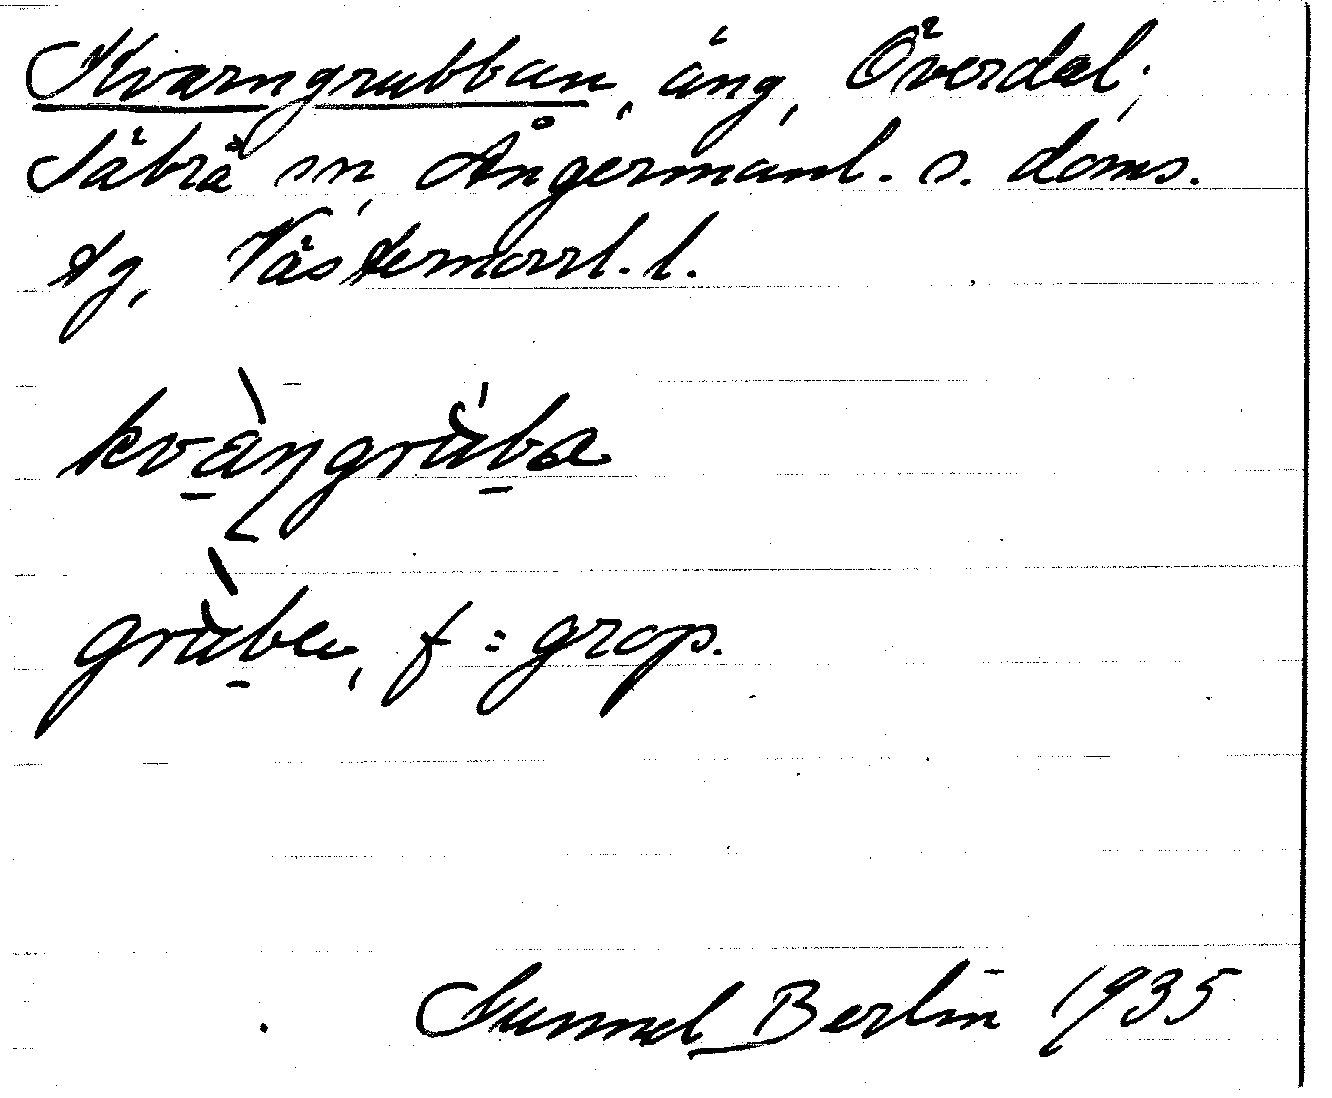 Kvarngrubban, äng, Överdal,
Säbrå sn, Ångermanl. s. doms.
tg, Västernorrl. l.
kvàŋgruba
gruba, f = grop.
Berlin 1935